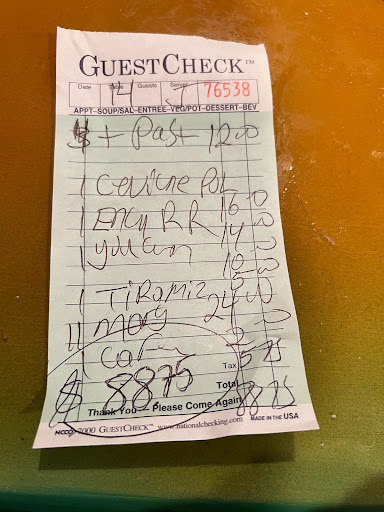 GUESTCHECK™
Date Table Guests Server 76538
14
APPT-SOUP/SAL-ENTREE-VEG/POT-DESSERT-BEV
+ Past 12 00
1 Ceviche 16 0
1 Ency RR 14 00
1 10 00
1 Tiramiz 5 00
11 24 00
2 0
Tax 5 75
$ 88.75
Total 88 75
Thank You - Please Come Again
NCCO 7000 GUESTCHECK™ www.nationalchecking.com MADE IN THE USA